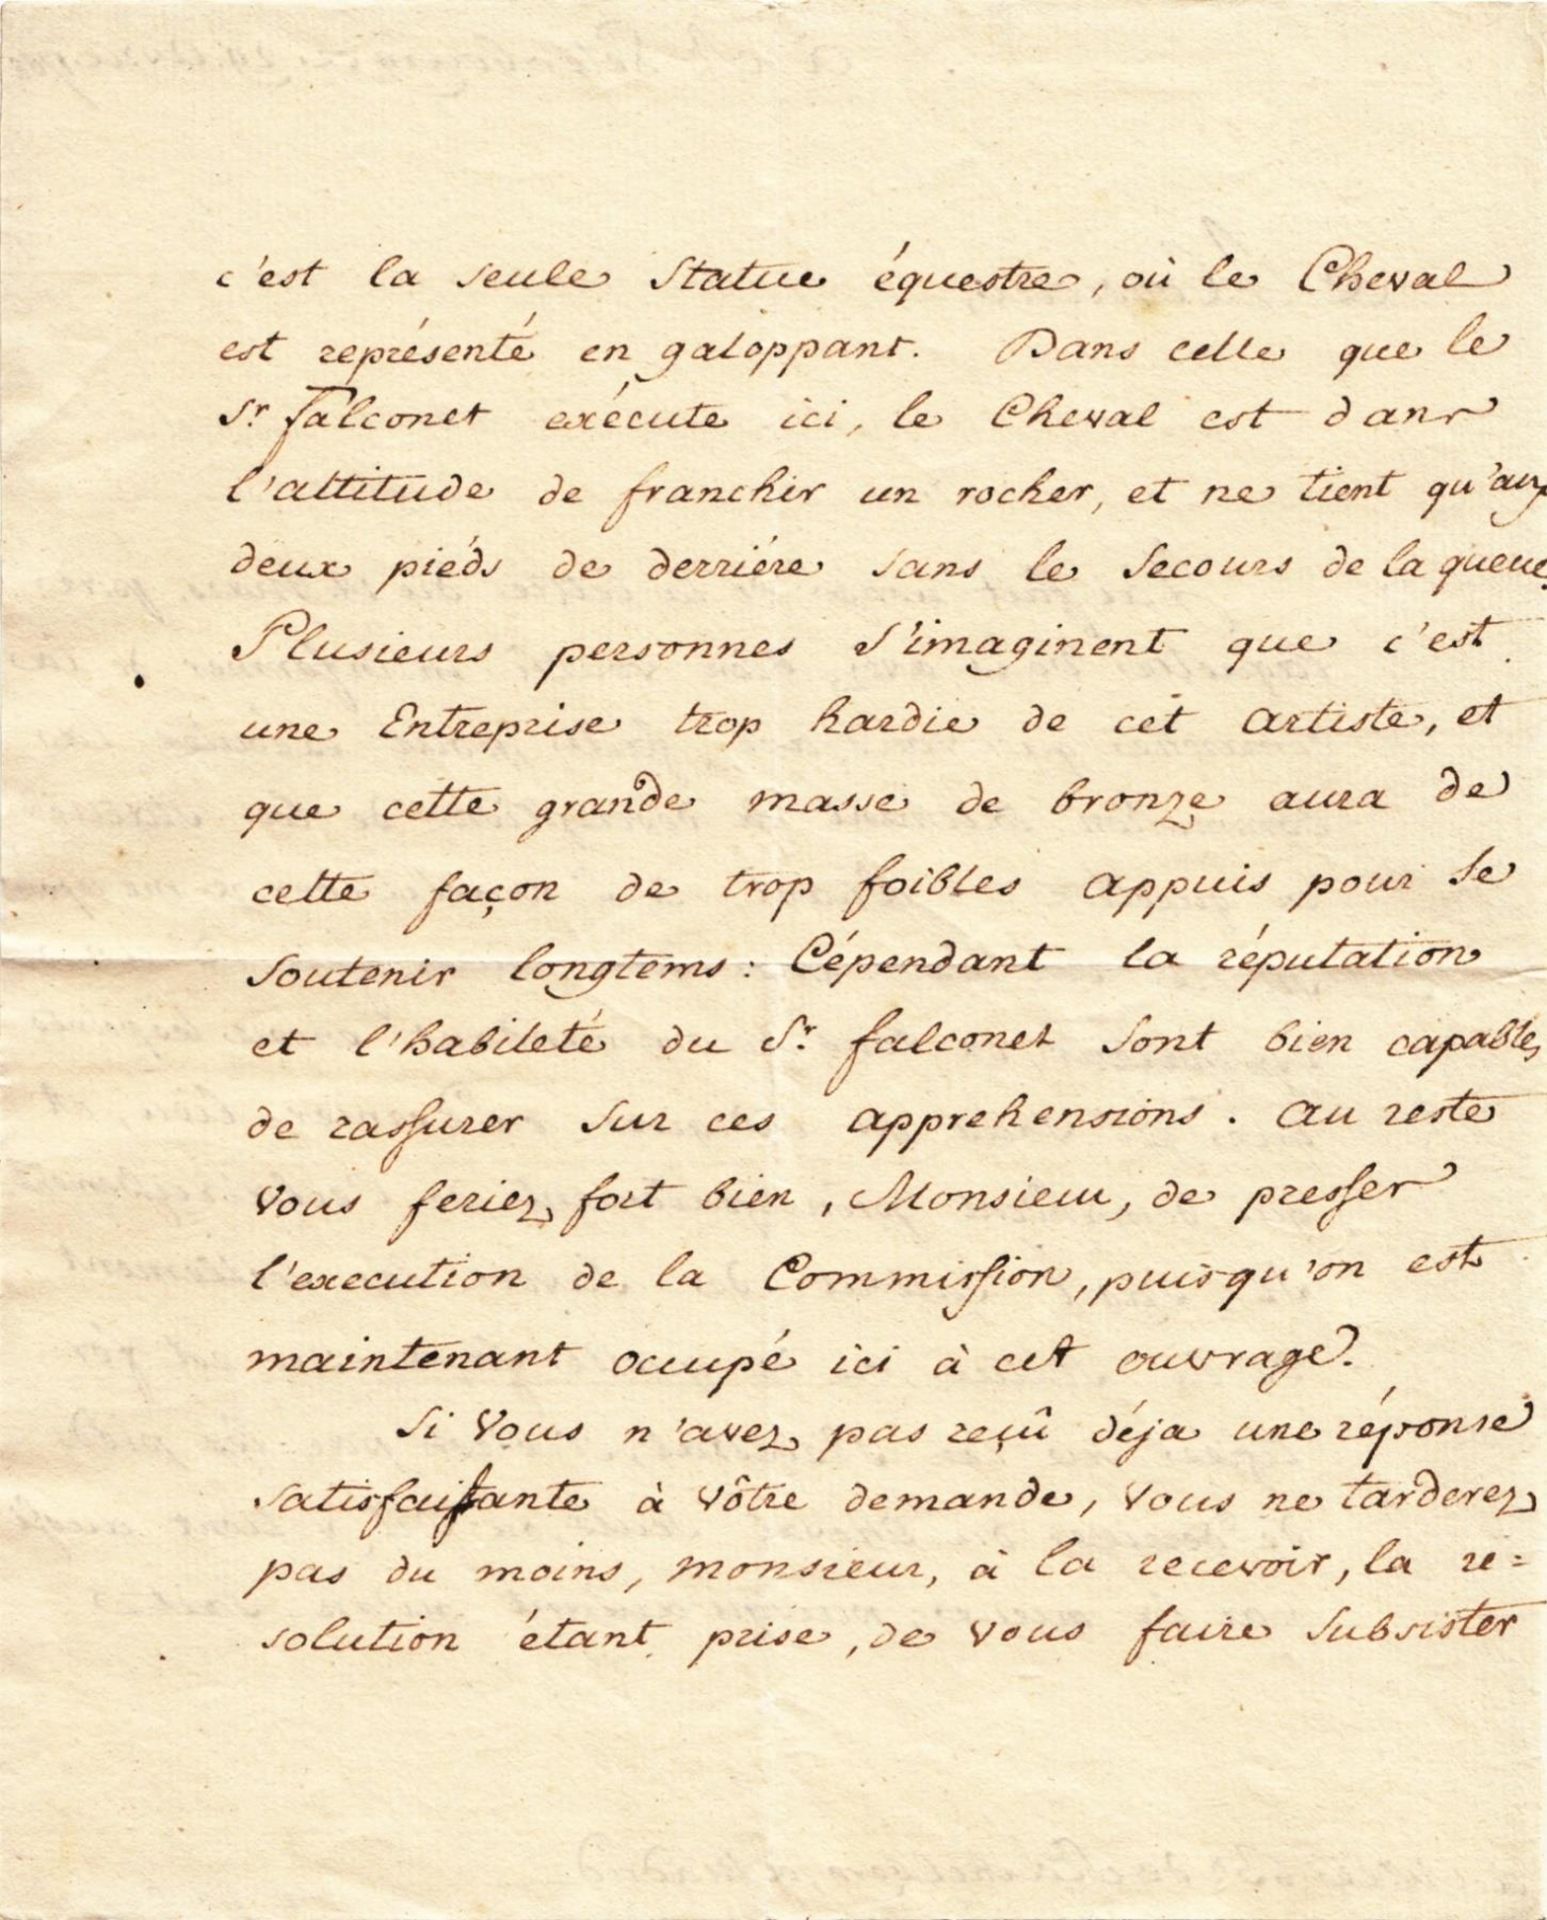 c'est la seule Statue équestre, où le Cheval
est représenté en galoppant. Dans celle que le
Sr. Falconet exécute ici, le Cheval est dans
l'attitude de franchir un rocher, et ne tient qu'aux
deux piéds de derriére sans le secours de la queue.
Plusieurs personnes s'imaginent que c'est
une Entreprise trop hardie de cet artiste, et
que cette grande masse de bronze aura de
cette façon de trop foibles appuis pour se
soutenir longtems: Cépendant la réputation
et l'habileté du Sr. falconet sont bien capables
de rassurer sur ces apprehensions. au reste
vous feriez fort bien, Monsieur, de presser
l'execution de la Commission, puisqu'on est
maintenant occupé ici à cet ouvrage.
Si Vous n'avez pas reçû déja une réponse
satisfaisante à vôtre demande, vous ne tarderez
pas du moins, monsieur, à la recevoir, la re=
solution étant prise, de vous faire subsister